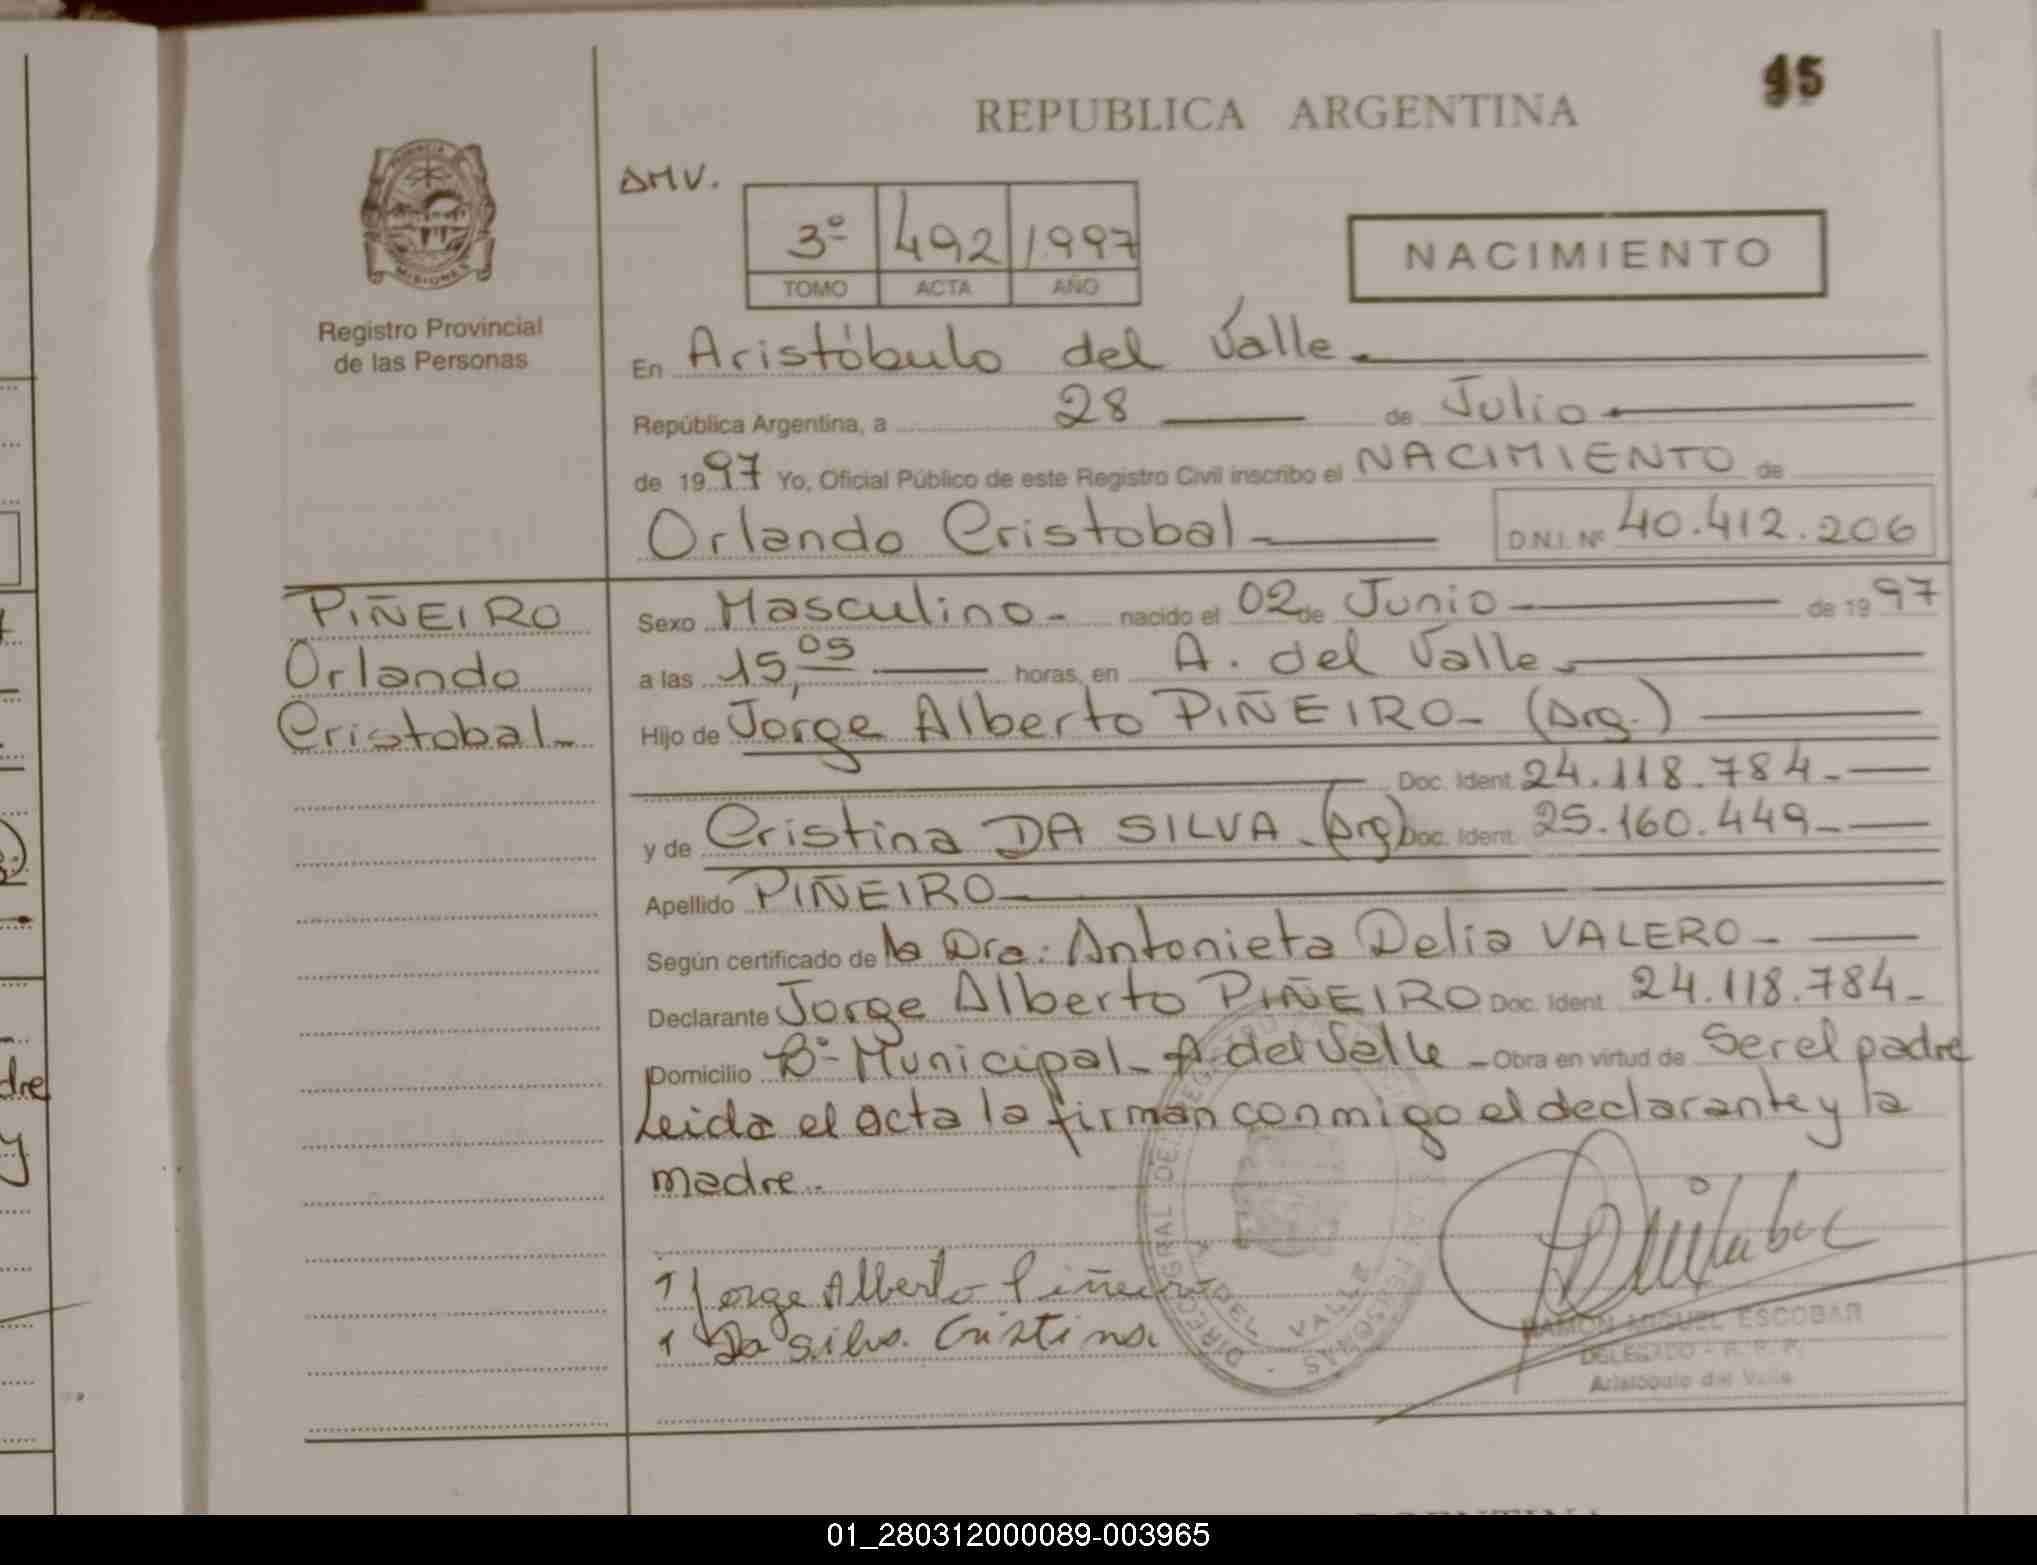 95
REPUBLICA ARGENTINA
PROVINCIA
MISIONES
Registro Provincial
de las Personas
AMV.
3º 492 1997
TOMO ACTA AÑO
NACIMIENTO
En Aristóbulo del Valle
República Argentina, a 28 de Julio
de 1997 Yo, Oficial Público de este Registro Civil inscribo el NACIMIENTO de
Orlando Cristobal D.N.I. Nº 40.412.206
PIÑEIRO
Orlando
Cristobal
Sexo Masculino nacido el 02 de Junio de 1997
a las 15,05 horas, en A. del Valle
Hijo de Jorge Alberto PIÑEIRO (Arg.)
Doc. Ident. 24.118.784
y de Cristina DA SILVA (Arg) Doc. Ident. 25.160.449
Apellido PIÑEIRO
Según certificado de la Dra. Antonieta Delia VALERO
Declarante Jorge Alberto PIÑEIRO Doc. Ident. 24.118.784
Domicilio Bº Municipal A. del Valle Obra en virtud de Ser el padre
Leida el acta la firman conmigo el declarante y la
madre.
Jorge Alberto Piñeiro
Da Silva Cristina
DEL VALLE
RAMON MIGUEL ESCOBAR
DELEGADO - R. P. P.
Aristóbulo del Valle
01_280312000089-003965